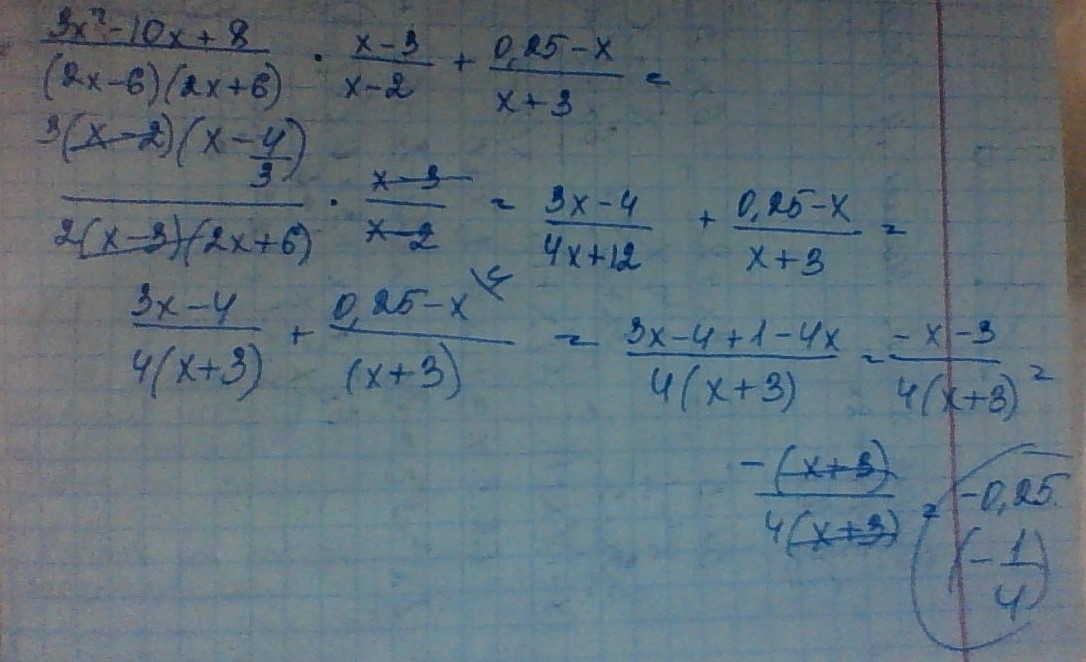 (3x²-10x+8)/((2x-6)(2x+6)) · (x-3)/(x-2) + (0,25-x)/(x+3) =
(3(x-2)(x-4/3))/(2(x-3)(2x+6)) · (x-3)/(x-2) = (3x-4)/(4x+12) + (0,25-x)/(x+3) =
(3x-4)/(4(x+3)) + (0,25-x\4)/((x+3)) = (3x-4+1-4x)/(4(x+3)) = (-x-3)/(4(x+3)) =
(-(x+3))/(4(x+3)) = -0,25
(-1/4)